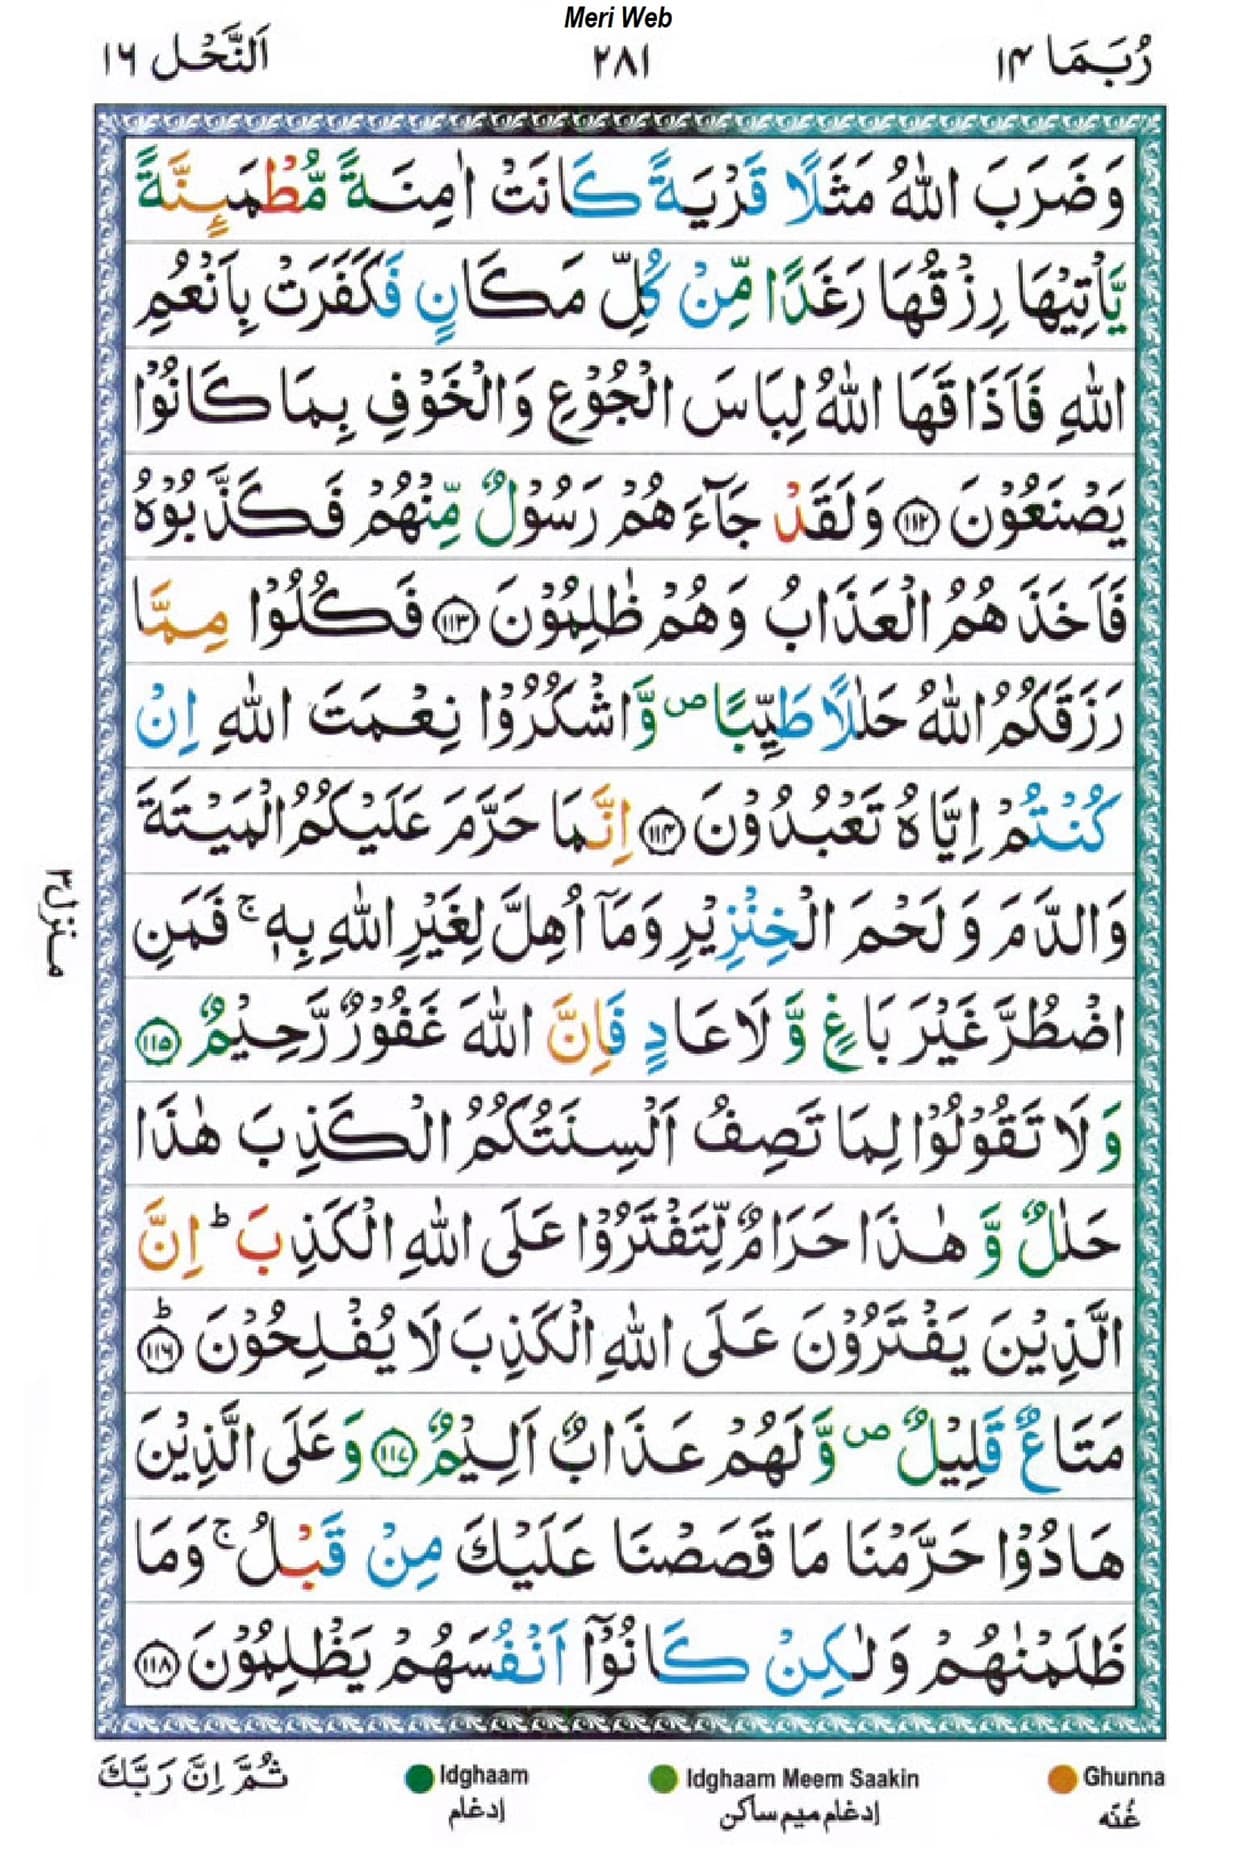 Meri Web
رُبَمَا ۱۴
۲۸۱
اَلنَّحْل ۱۶
وَضَرَبَ اللّٰهُ مَثَلًا قَرْيَةً كَانَتْ اٰمِنَةً مُّطْمَىِٕنَّةً
يَّاْتِيْهَا رِزْقُهَا رَغَدًا مِّنْ كُلِّ مَكَانٍ فَكَفَرَتْ بِاَنْعُمِ
اللّٰهِ فَاَذَاقَهَا اللّٰهُ لِبَاسَ الْجُوْعِ وَالْخَوْفِ بِمَا كَانُوْا
يَصْنَعُوْنَ ۝۱۱۲ وَلَقَدْ جَآءَهُمْ رَسُوْلٌ مِّنْهُمْ فَكَذَّبُوْهُ
فَاَخَذَهُمُ الْعَذَابُ وَهُمْ ظٰلِمُوْنَ ۝۱۱۳ فَكُلُوْا مِمَّا
رَزَقَكُمُ اللّٰهُ حَلٰلًا طَيِّبًا ۪ وَّاشْكُرُوْا نِعْمَتَ اللّٰهِ اِنْ
كُنْتُمْ اِيَّاهُ تَعْبُدُوْنَ ۝۱۱۴ اِنَّمَا حَرَّمَ عَلَيْكُمُ الْمَيْتَةَ
وَالدَّمَ وَلَحْمَ الْخِنْزِيْرِ وَمَآ اُهِلَّ لِغَيْرِ اللّٰهِ بِهٖ ۚ فَمَنِ
اضْطُرَّ غَيْرَ بَاغٍ وَّلَا عَادٍ فَاِنَّ اللّٰهَ غَفُوْرٌ رَّحِيْمٌ ۝۱۱۵
وَلَا تَقُوْلُوْا لِمَا تَصِفُ اَلْسِنَتُكُمُ الْكَذِبَ هٰذَا
حَلٰلٌ وَّهٰذَا حَرَامٌ لِّتَفْتَرُوْا عَلَى اللّٰهِ الْكَذِبَ ؕ اِنَّ
الَّذِيْنَ يَفْتَرُوْنَ عَلَى اللّٰهِ الْكَذِبَ لَا يُفْلِحُوْنَ ؕ۝۱۱۶
مَتَاعٌ قَلِيْلٌ ۪ وَّلَهُمْ عَذَابٌ اَلِيْمٌ ۝۱۱۷ وَعَلَى الَّذِيْنَ
هَادُوْا حَرَّمْنَا مَا قَصَصْنَا عَلَيْكَ مِنْ قَبْلُ ۚ وَمَا
ظَلَمْنٰهُمْ وَلٰكِنْ كَانُوْٓا اَنْفُسَهُمْ يَظْلِمُوْنَ ۝۱۱۸
منزل ۳
ثُمَّ اِنَّ رَبَّكَ
Idghaam
إدغام
Idghaam Meem Saakin
إدغام ميم ساكن
Ghunna
غُنّه